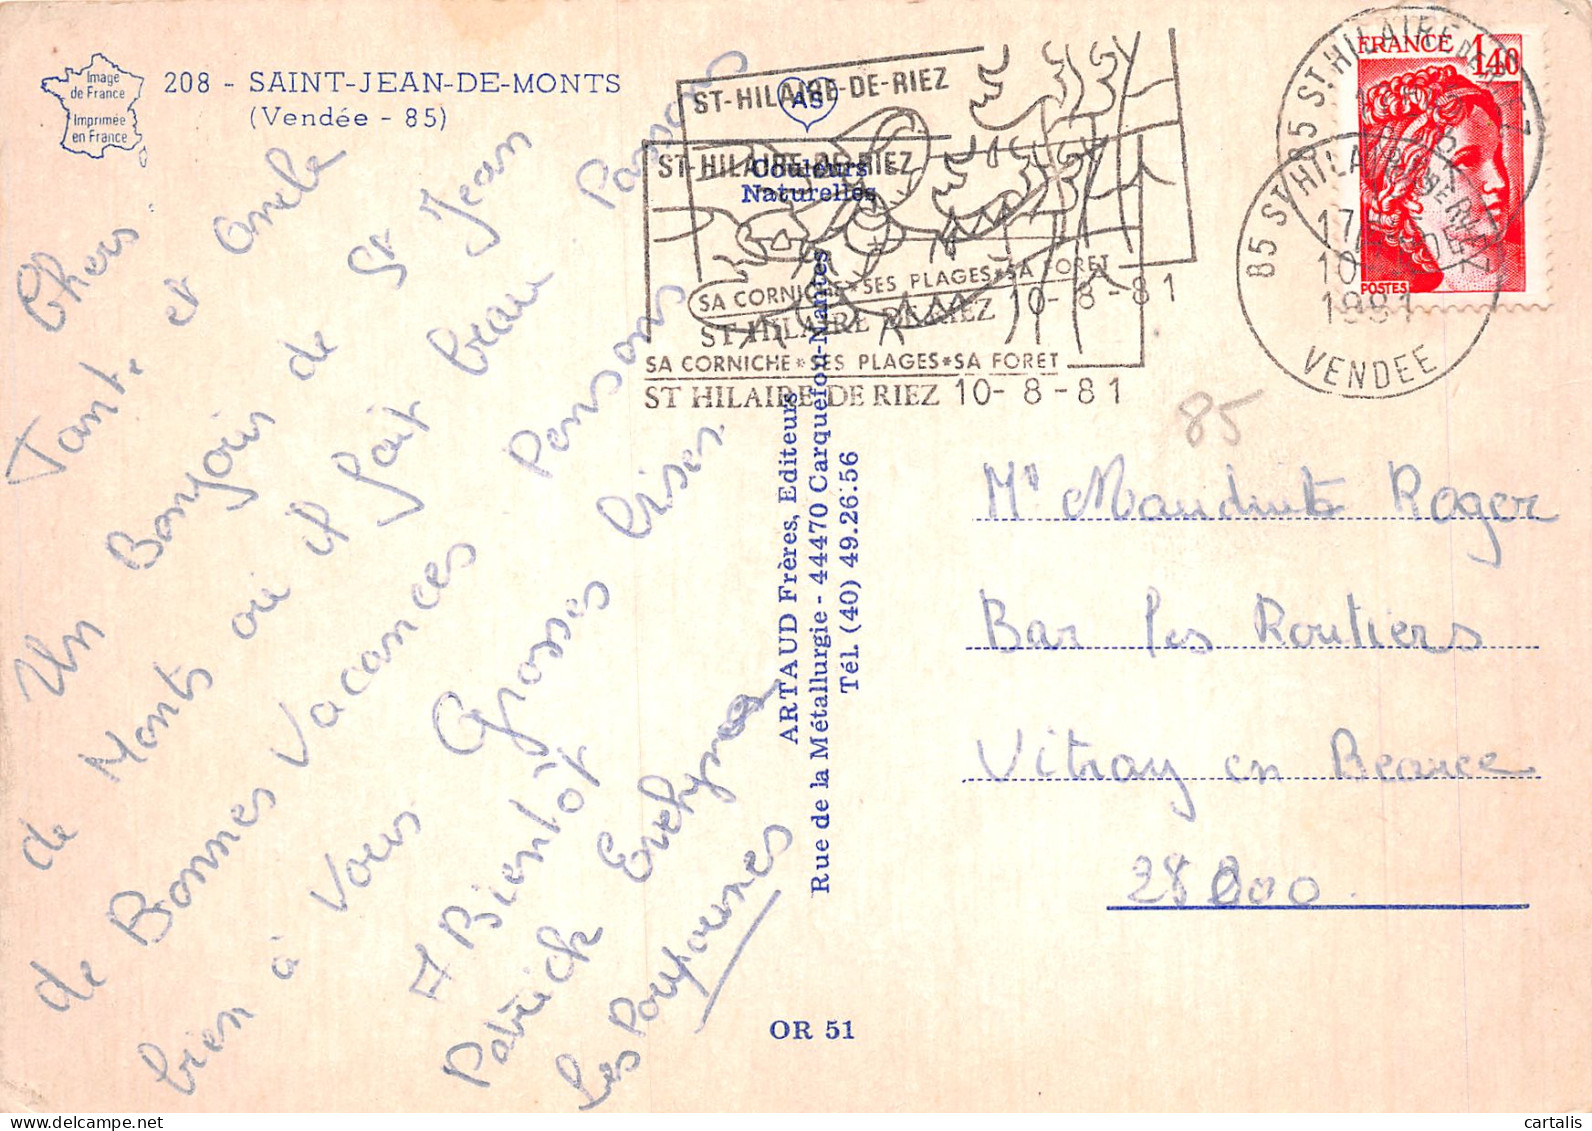 Image
de France
Imprimée
en France
208 - SAINT-JEAN-DE-MONTS
(Vendée - 85)
Chers
Tante et Oncle
Un Bonjour de St Jean
de Monts où il fait beau Passons
de Bonnes Vacances Pensons
bien à Vous Grosses bises
A Bientôt
Patrick Evelyne
les Poupounes
AS
Couleurs
Naturelles
ARTAUD Frères, Editeurs
Rue de la Métallurgie - 44470 Carquefou-Nantes
Tél. (40) 49.26.56
OR 51
ST-HILAIRE-DE-RIEZ
SA CORNICHE*SES PLAGES*SA FORET
ST HILAIRE DE RIEZ 10-8-81
ST-HILAIRE-DE-RIEZ
SA CORNICHE*SES PLAGES*SA FORET
ST HILAIRE DE RIEZ 10-8-81
85 ST HILAIRE DE RIEZ
85 ST HILAIRE DE RIEZ
17H
10-8
1981
VENDEE
FRANCE 1,40
POSTES
85
Mr Roger
Bar les Routiers
Vitray en Beauce
28000